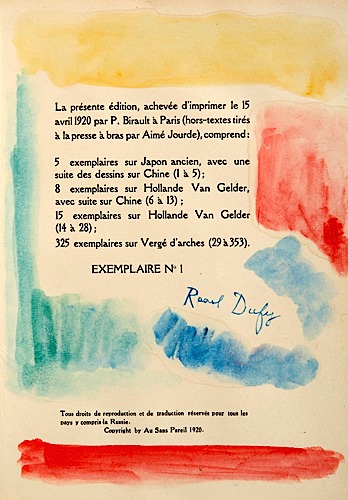 La présente édition, achevée d'imprimer le 15
avril 1920 par P. Birault à Paris (hors-textes tirés
à la presse à bras par Aimé Jourde), comprend :
5 exemplaires sur Japon ancien, avec une
suite des dessins sur Chine (1 à 5) ;
8 exemplaires sur Hollande Van Gelder,
avec suite sur Chine (6 à 13) ;
15 exemplaires sur Hollande Van Gelder
(14 à 28) ;
325 exemplaires sur Vergé d'arches (29 à 353).
EXEMPLAIRE N° 1
Raoul Dufy
Tous droits de reproduction et de traduction réservés pour tous les
pays y compris la Russie.
Copyright by Au Sans Pareil 1920.